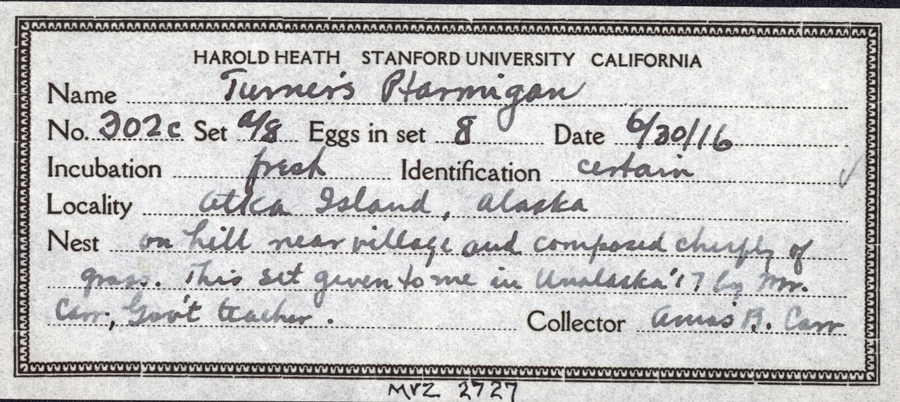 HAROLD HEATH STANFORD UNIVERSITY CALIFORNIA
Name Turner's Ptarmigan
No. 302c Set a/8 Eggs in set 8 Date 6/30/16
Incubation fresh Identification certain ✓
Locality Atka Island, Alaska
Nest on hill near village and composed chiefly of
grass. This set given to me in Unalaska '17 by Mr.
Carr, Gov't teacher. Collector Amos B. Carr
MVZ 2727